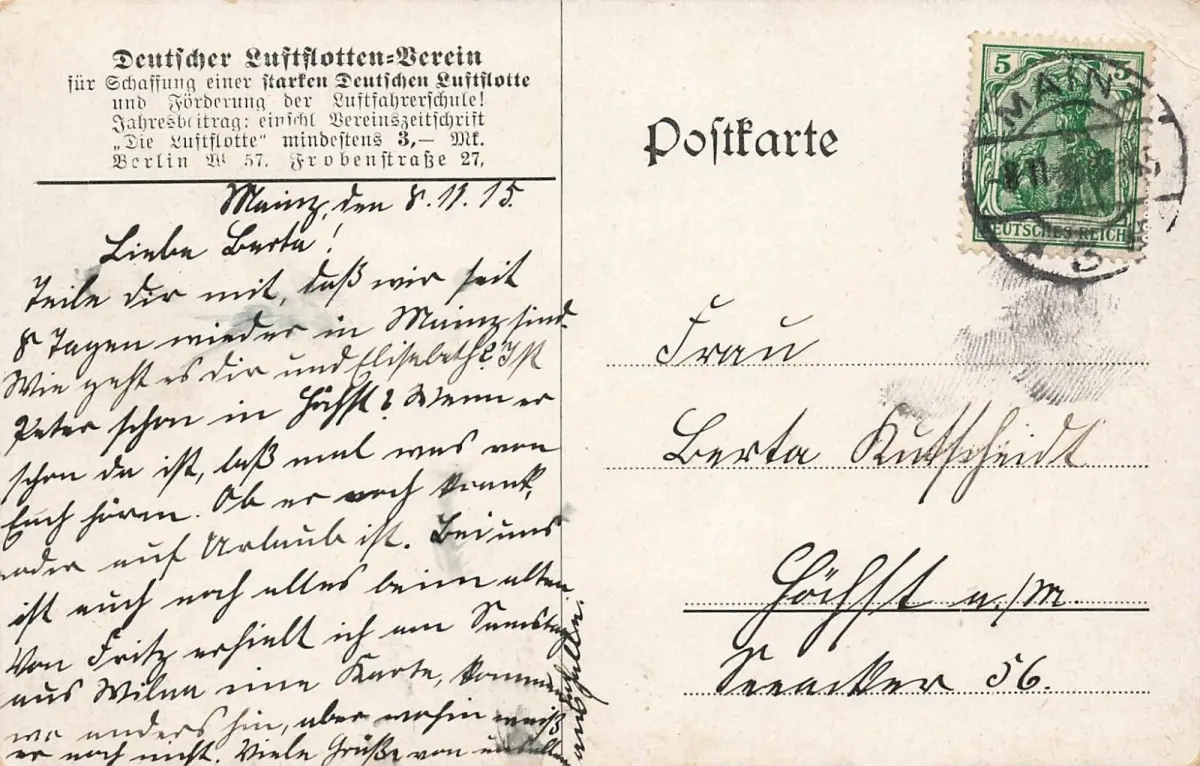 Deutscher Luftflotten-Verein
für Schaffung einer starken Deutschen Luftflotte
und Förderung der Luftfahrerschule!
Jahresbeitrag: einschl Vereinszeitschrift
„Die Luftflotte“ mindestens 3,— Mk.
Berlin W 57, Frobenstraße 27,
Mainz, den 8.11.15.
Liebe Berta!
Teile dir mit, daß wir seit
8 Tagen wieder in Mainz sind.
Wie geht es dir und Elisabeth? Ist
Peter schon in Höchst? Wenn er
schon da ist, laß mal was von
Euch hören. Ob er noch krank,
oder auf Urlaub ist. Bei uns
ist auch noch alles beim alten.
Von Fritz erhielt ich am Samstag
aus Wilna eine Karte, kommen
wo anders hin, aber wohin weiß
er noch nicht. Viele Grüße von uns allen
Postkarte
5 5
DEUTSCHES REICH
MAINZ
Frau
Berta Kutscheidt
Höchst a./M.
Seeacker 56.